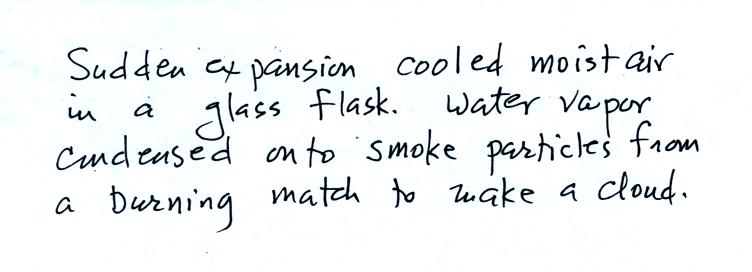 Sudden expansion cooled moist air
in a glass flask. Water vapor
condensed onto smoke particles from
a burning match to make a cloud.